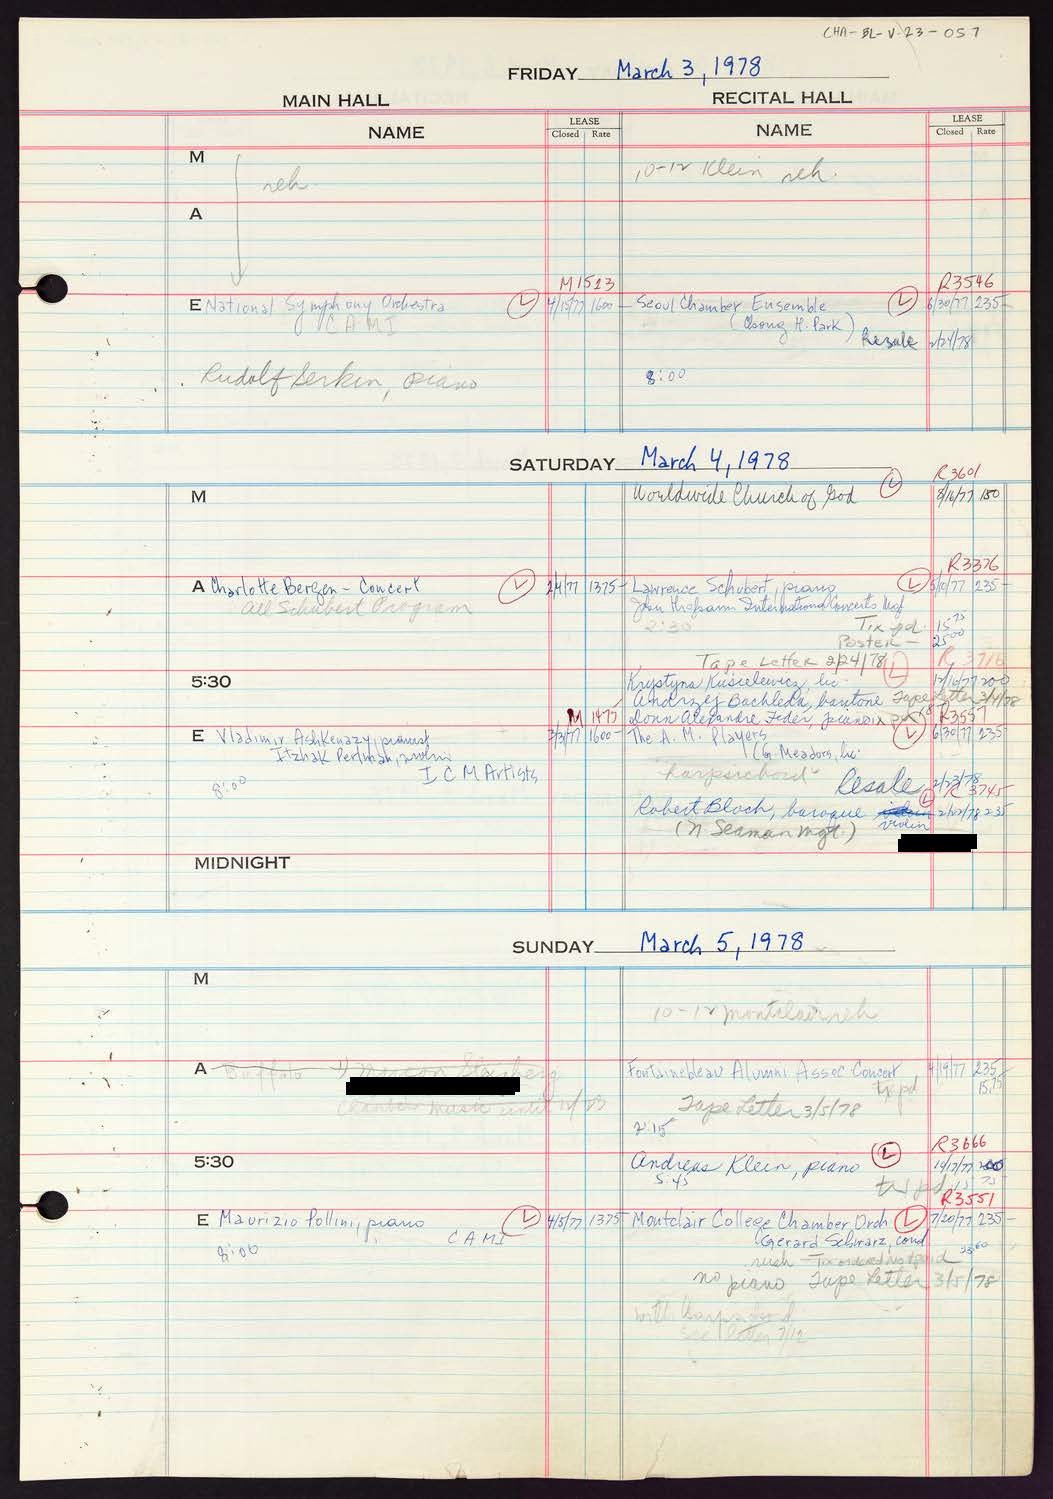 CHA-BL-V-23-057
FRIDAY March 3, 1978
MAIN HALL
RECITAL HALL
NAME
LEASE
Closed Rate
NAME
LEASE
Closed Rate
M
reh.
10-12 Klein reh.
A
M1523
R3546
E National Symphony Orchestra L 4/15/77 1600- Seoul Chamber Ensemble L 6/30/77 235-
CAMI
(Chong H. Park)
Resale 2/24/78
Rudolf Serkin, piano
8:00
SATURDAY March 4, 1978
R3601
M
Worldwide Church of God L 8/16/77 150
R3376
A Charlotte Bergen - Concert L 2/4/77 1375- Lawrence Schubert, piano L 5/10/77 235-
All Schubert Program
International Concerts Mgt
2:30
Tix pd. 15.75
Poster - 25.00
Tape Letter 2/24/78 L R 3716
5:30
Krystyna Kusielewicz, lic. 12/10/77 200
Andrzej Bachleda, baritone Tape Letter 3/4/78
M 1475
Donn Alexandre Feder, pianoix R3557
E Vladimir Ashkenazy, pianist 3/3/77 1600- The A. M. Players L 6/30/77 235-
Itzhak Perlman, violin
(G. Meadors, lic.
ICM Artists
8:00
harpsichord
Resale 2/23/78
L R 3745
Robert Bloch, baroque violin 2/22/78 235
(N Seaman Mgt)
MIDNIGHT
SUNDAY March 5, 1978
M
10-12 Montclair reh
A Buffalo
Fontainebleau Alumni Assoc Concert 4/19/77 235
Chamber Music until
tx pd 15.75
Tape Letter 3/5/78
2:15
R3666
5:30
Andreas Klein, piano L 200
5:45
tx pd 15.75
R3551
E Maurizio Pollini, piano L 4/5/77 1375 Montclair College Chamber Orch L 7/20/77 235-
CAMI
(Gerard Schwarz, cond
8:00
Tix ordered not paid
no piano Tape Letter 3/5/78
with harpsichord
see letter 7/12